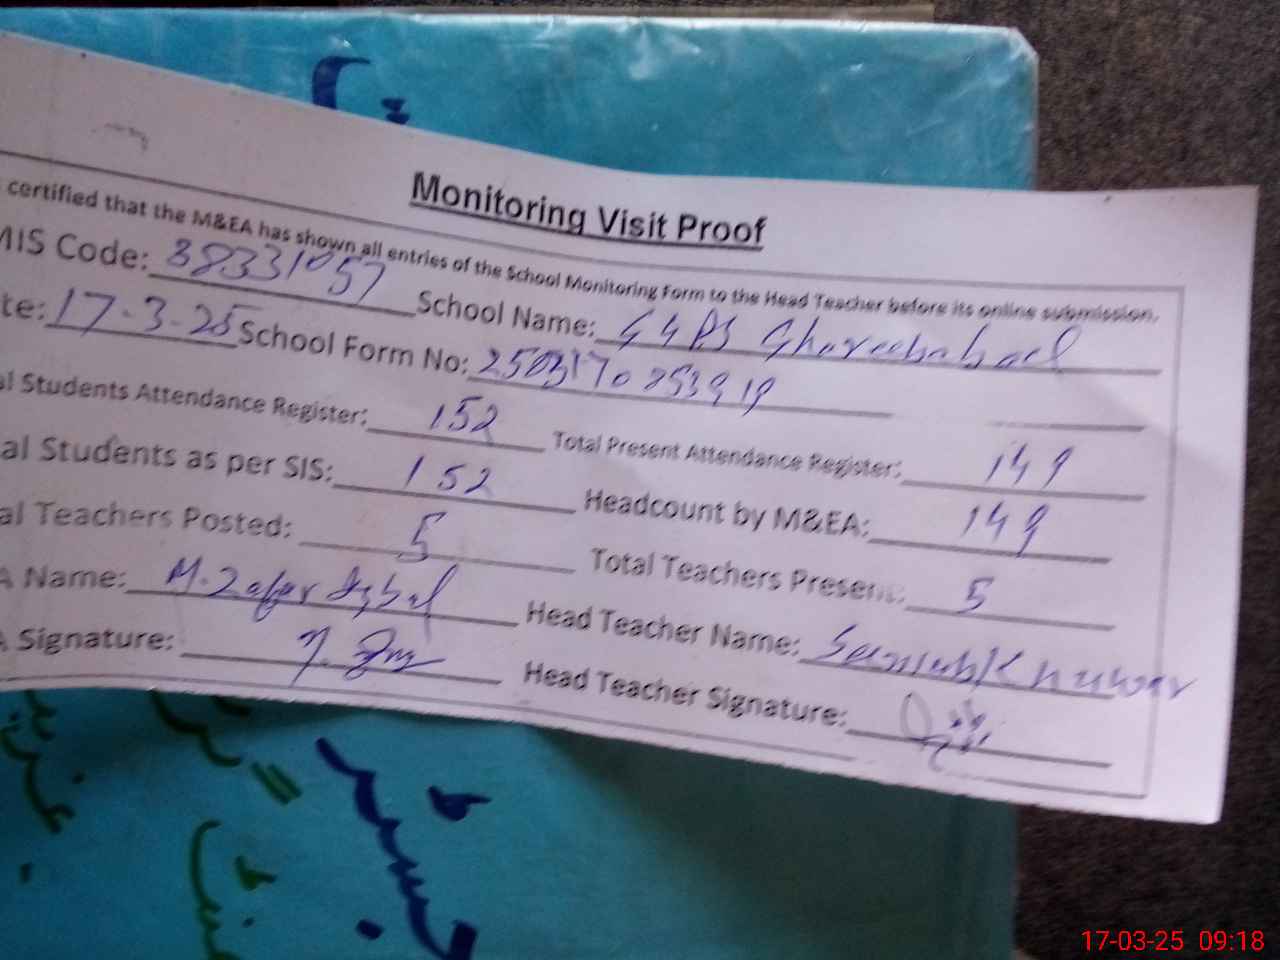 Monitoring Visit Proof
certified that the M&EA has shown all entries of the School Monitoring Form to the Head Teacher before its online submission.
MIS Code: 38331057 School Name: GGPS Ghareebabad
te: 17-3-25 School Form No: 2503170853919
al Students Attendance Register: 152 Total Present Attendance Register: 149
al Students as per SIS: 152 Headcount by M&EA: 149
al Teachers Posted: 5 Total Teachers Present: 5
A Name: M. Zafar Iqbal Head Teacher Name:
A Signature: Head Teacher Signature:
17-03-25 09:18